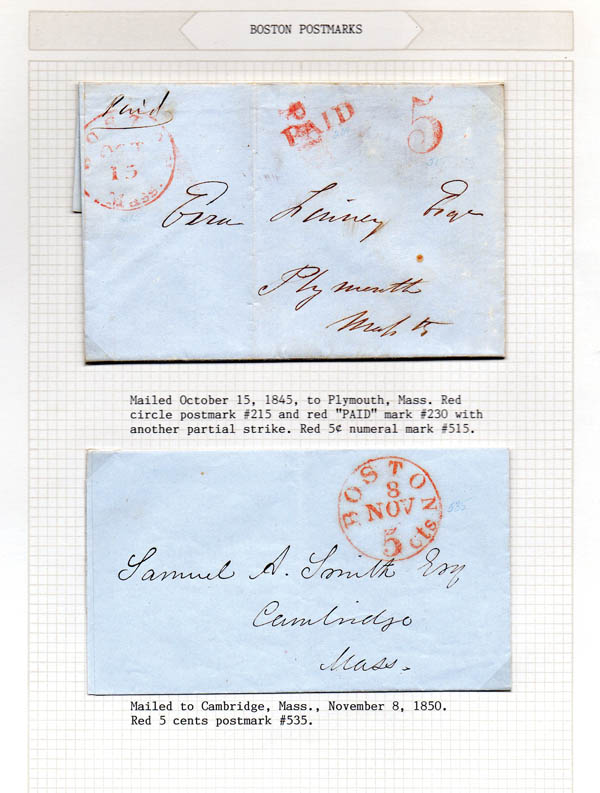 BOSTON POSTMARKS
Paid
BOSTON
OCT
15
Mass.
PAID
5
Linney Esqr
Plymouth
Mass ts
Mailed October 15, 1845, to Plymouth, Mass. Red
circle postmark #215 and red "PAID" mark #230 with
another partial strike. Red 5¢ numeral mark #515.
BOSTON
8
NOV
5 cts
535
Samuel A. Smith Esq
Cambridge
Mass.
Mailed to Cambridge, Mass., November 8, 1850.
Red 5 cents postmark #535.